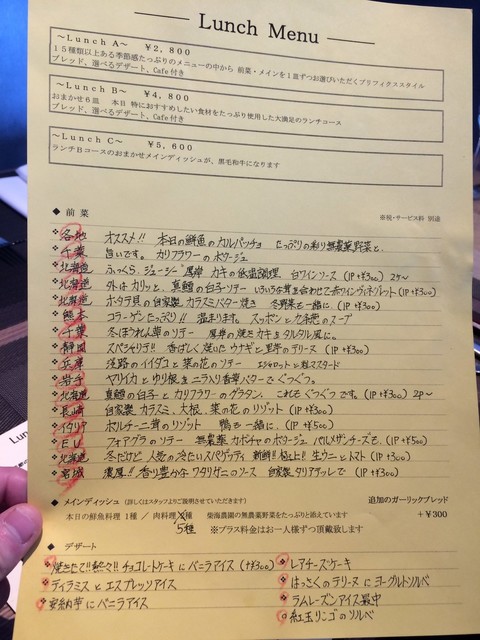 Lunch Menu
～Lunch A～ ￥2,800
15種類以上ある季節感たっぷりのメニューの中から 前菜・メインを1皿ずつお選びいただくプリフィクススタイル
ブレッド、選べるデザート、Cafe付き
～Lunch B～ ￥4,800
おまかせ6皿 本日 特におすすめしたい食材をたっぷり使用した大満足のランチコース
ブレッド、選べるデザート、Cafe付き
～Lunch C～ ￥5,600
ランチBコースのおまかせメインディッシュが、黒毛和牛になります
◆ 前菜 ※税・サービス料 別途
各地 オススメ!! 本日の鮮魚のカルパッチョ たっぷりの彩り無農薬野菜と、
千葉 旨いです。 カリフラワーのポタージュ
北海道 ふっくら、ジューシー 厚岸 カキの低温調理 白ワインソース (1P +¥300) 2ケ～
北海道 外はカリッと、真鱈の白子ソテー いろいろな茸を合わせて赤ワインヴィネグレット(1P +¥300)
北海道 ホタテ貝の自家製カラスミバター焼き 冬野菜も一緒に。(1P +¥300)
熊本 コラーゲンたっぷり!! 温まります。 スッポンと九条葱のスープ
千葉 冬ほうれん草のソテー 厚岸の焼きカキとタルタル風に。
静岡 スペシャリテ!! 香ばしく焼いたウナギと里芋のテリーヌ (1P +¥300)
兵庫 淡路のイイダコと菜の花のソテー エシャロットと粒マスタード
岩手 ヤリイカとゆり根をニラ入り香草バターでぐつぐつ。
北海道 真鱈の白子とカリフラワーのグラタン、 これもぐつぐつです。 (1P +¥300) 2P～
長崎 自家製カラスミ、大根、菜の花のリゾット (1P +¥300)
イタリア ポルチーニ茸のリゾット 鴨も一緒に。 (1P +¥500)
EU フォアグラのソテー 無農薬カボチャのポタージュ パルメザンチーズも、(1P +¥500)
北海道 冬だけど 人気の冷たいスパゲッティ 新鮮!! 極上!! 生ウニとトマト (1P +¥300)
宮城 濃厚!! 香り豊かなワタリガニのソース 自家製タリアテッレで (1P +¥300)
◆ メインディッシュ (詳しくはスタッフよりご説明させていただきます) 追加のガーリックブレッド
本日の鮮魚料理 1種 / 肉料理 種 柴海農園の無農薬野菜をたっぷりと添えています +￥300
5種 ※プラス料金はお一人様ずつ頂戴致します
◆ デザート
焼きたて!! 熱々!! チョコレートケーキにバニラアイス (+¥300) レアチーズケーキ
ティラミスとエスプレッソアイス はっさくのテリーヌにヨーグルトソルベ
安納芋にバニラアイス ラムレーズンアイス最中
紅玉りんごのソルベ